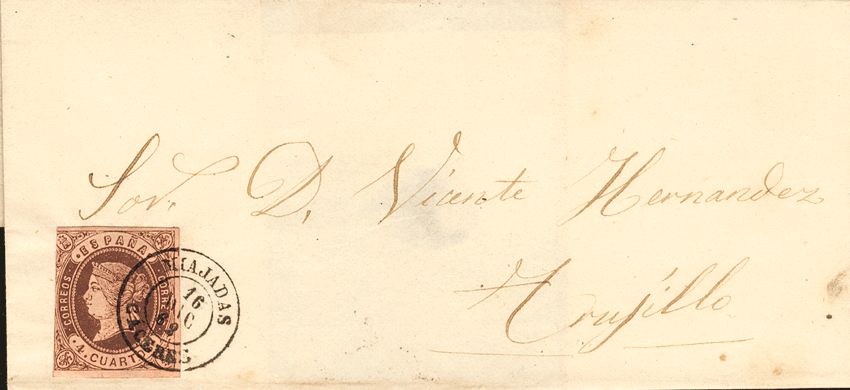 Sor. D. Vicente Hernandez
Trujillo
ESPAÑA
CORREOS
CORRE
4 CUARTO
MIAJADAS
16
DIC
62
CACERES